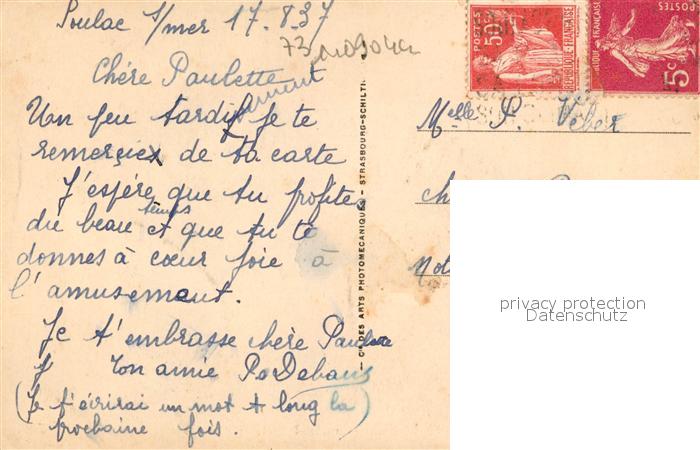 Soulac s/mer 17.8.37
Chère Paulette
Un peu tardivement je te
remercie de ta carte
J'espère que tu profite
du beau temps et que tu te
donnes à cœur joie à
l'amusement.
Je t'embrasse chère Paulette
Ton amie
(Je t'écrirai un mot + long la
prochaine fois.)
Cie DES ARTS PHOTOMECANIQUES - STRASBOURG-SCHILTI
POSTES
50c
REPUBLIQUE FRANÇAISE
POSTES
5c
Melle P. Veber
privacy protection
Datenschutz